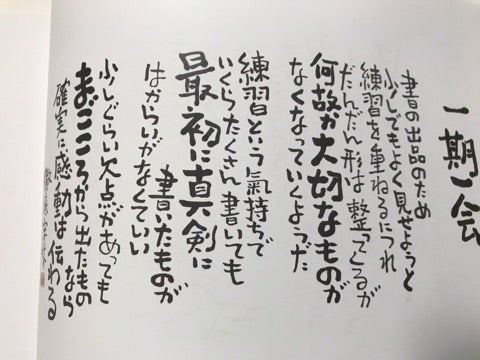 一期一会
書の出品のため
少しでもよく見せようと
練習を重ねるにつれ
だんだん形は整ってくるが
何故か大切なものが
なくなっていくようだ
練習という氣持ちで
いくらたくさん書いても
最初に真剣に
書いたものが
はからいがなくていい
少しぐらい欠点があっても
まごころから出たものなら
確実に感動は伝わる